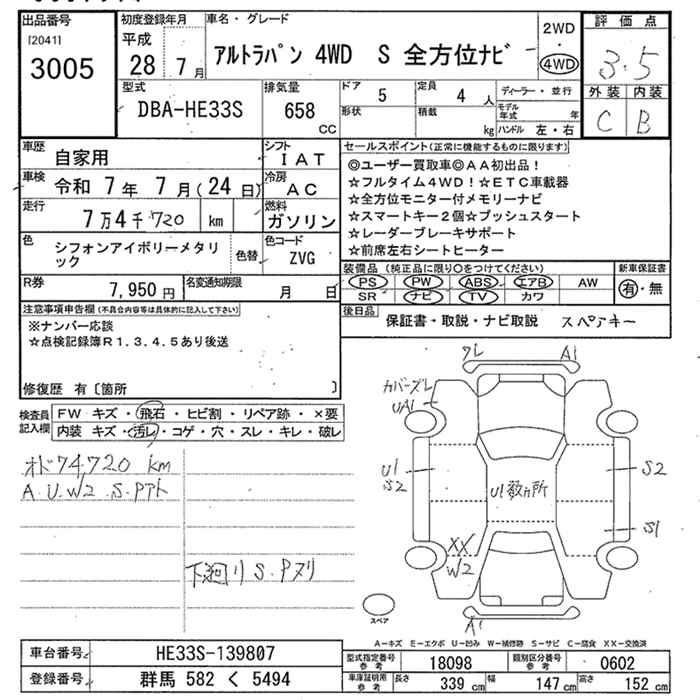 出品番号
[2041]
3005
初度登録年月
平成
28 7月
車名・グレード
アルトラパン 4WD S 全方位ナビ
2WD
・
4WD
評価点
3.5
外装 内装
C B
型式
DBA-HE33S
排気量
658
CC
ドア 5
形状
定員 4 人
積載 kg
ディーラー・並行
モデル年式 年
ハンドル 左・右
車歴
自家用
シフト
IAT
車検
令和 7年 7月(24日)
冷房
AC
走行
7万4千720 km
燃料
ガソリン
色
シフォンアイボリーメタリック
色替
色コード
ZVG
R券
7,950円
名変通知期限
月 日
セールスポイント(正常に機能するものに限ります)
◎ユーザー買取車◎AA初出品!
☆フルタイム4WD!☆ETC車載器
☆全方位モニター付メモリーナビ
☆スマートキー2個☆プッシュスタート
☆レーダーブレーキサポート
☆前席左右シートヒーター
装備品(純正品に限り○をつけてください)
PS PW ABS エアB AW
SR ナビ TV カワ
新車保証書
有・無
後日品
保証書・取説・ナビ取説 スペアキー
注意事項申告欄(不具合内容等は具体的に記入して下さい)
※ナンバー応談
☆点検記録簿R1.3.4.5あり後送
修復歴 有〔箇所 〕
検査員記入欄
FW キズ・飛石・ヒビ割・リペア跡・×要
内装 キズ・汚レ・コゲ・穴・スレ・キレ・破レ
オド74,720 km
A.U.W2 S.Pアト
下廻リ S.Pヌリ
ワレ
A1
カバーズレ
UA1
U1
S2
U1数ヵ所
S2
S1
XX
W2
A1
スペア
A-キズ E-エクボ U-凹み W-補修跡 S-サビ C-腐食 XX-交換済
車台番号
HE33S-139807
登録番号
群馬 582 く 5494
型式指定番号 参考
18098
類別区分番号 参考
0602
車庫証明用 参考
長さ 339 cm
幅 147 cm
高さ 152 cm